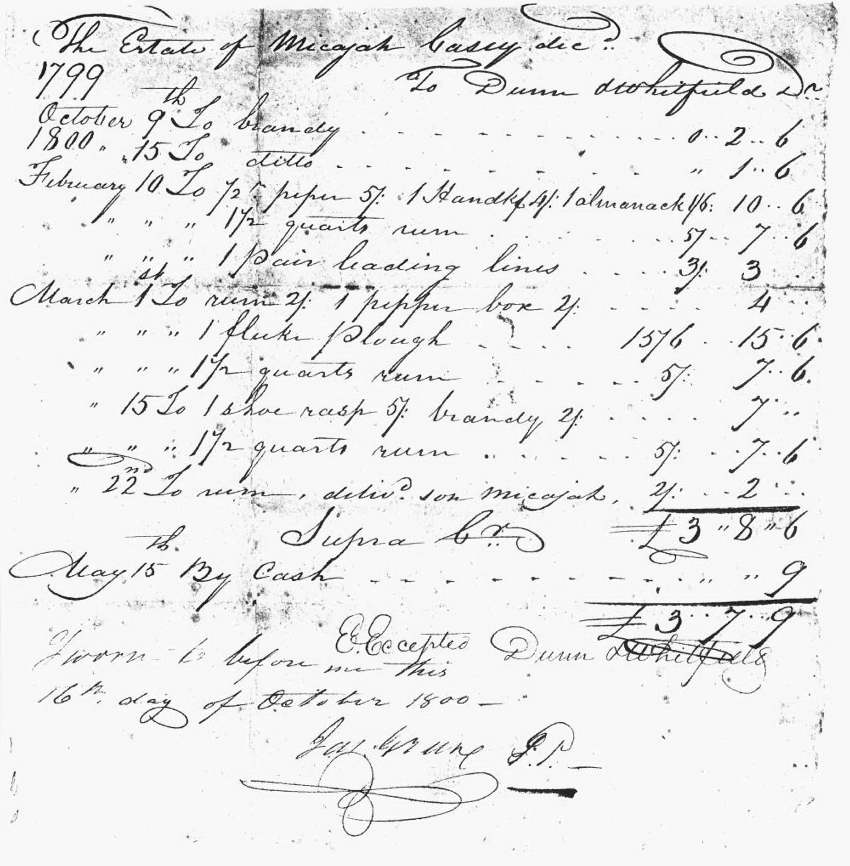 The Estate of Micajah Casey dec.d
1799 To Dunn & Whitfield Dr
October 9th To brandy 0 .. 2 .. 6
1800 " 15 To ditto " 1 .. 6
February 10 To 1/2 peper 5/: 1 Handkf 4/: 1 almanack 1/6: 10 .. 6
" " " 1 1/2 quarts rum 5/ 7 .. 6
" " " 1 pair leading lines 3/: 3 ..
March 1st To rum 2/: 1 pepper box 2/: 4 ..
" " " 1 fluke Plough 15/6 15 .. 6
" " " 1 1/2 quarts rum 5/: 7 .. 6
" 15 To 1 shoe rasp 5/: brandy 2/: 7 ..
" " " 1 1/2 quarts rum 5/: 7 .. 6
" 22nd To rum, deliv.d son Micajah, 2/: 2 ..
Supra Cr £ 3 " 8 " 6
May 15th By Cash " " 9
£ 3 .. 7 .. 9
E. Eccepted Dunn & Whitfield
Sworn to before me this
16th day of October 1800 —
J.P. —